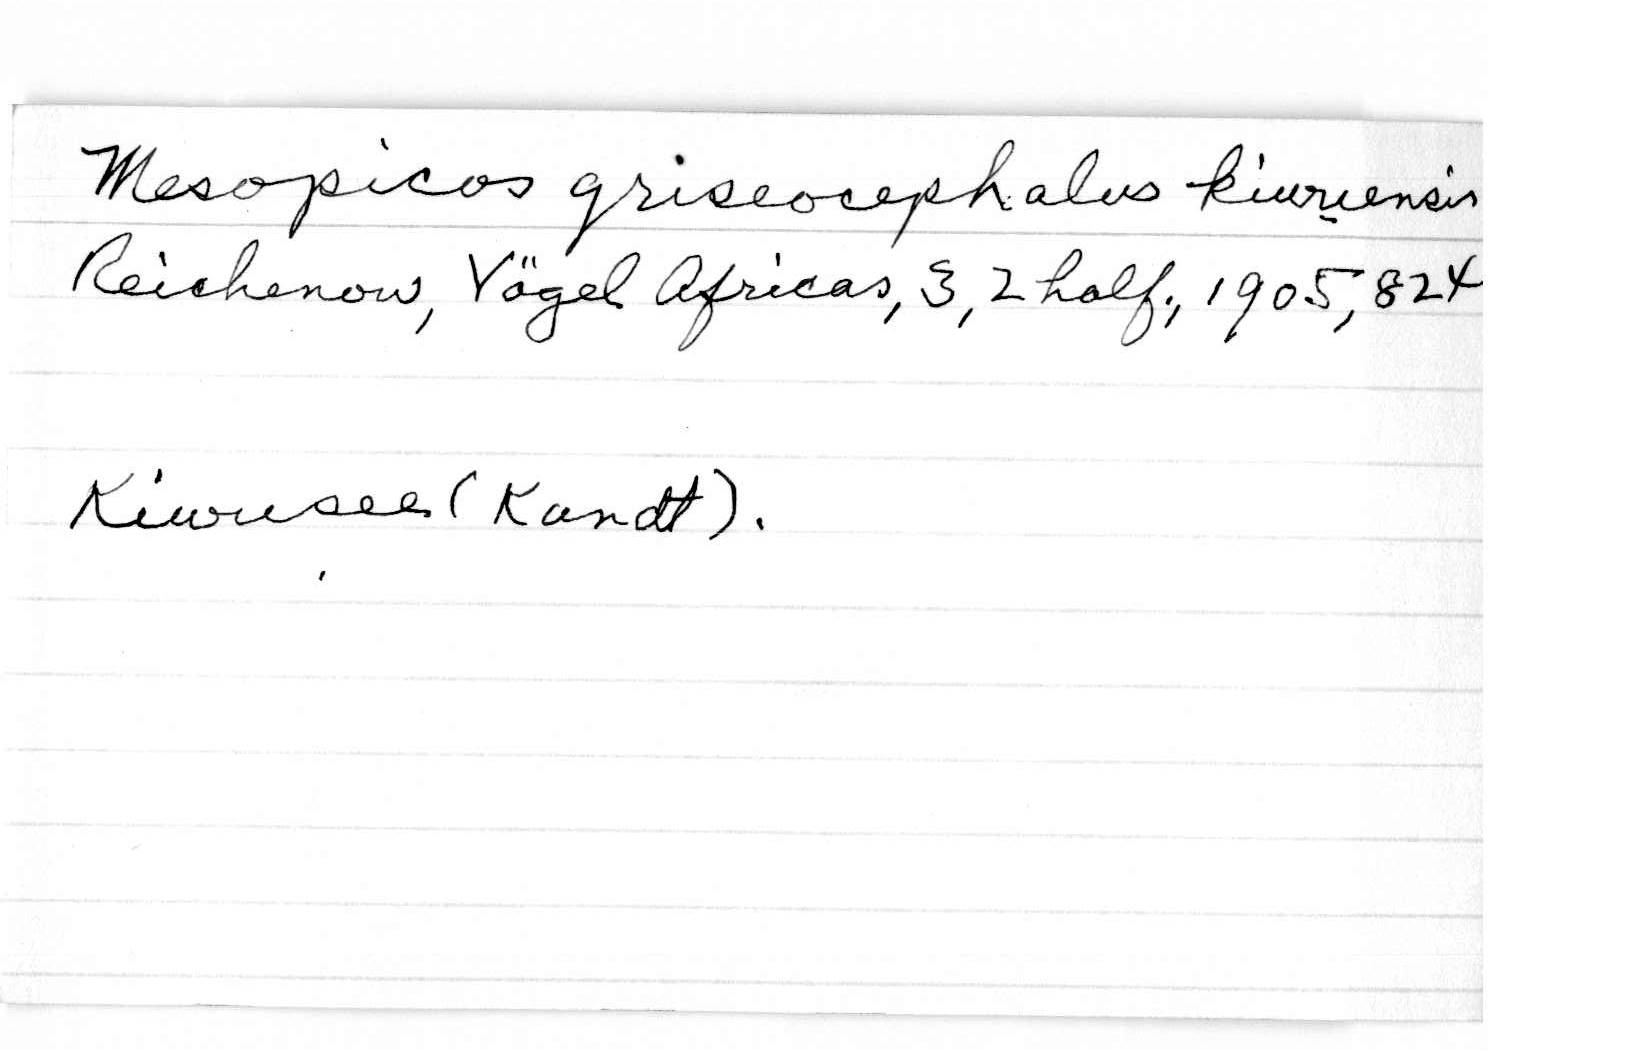 Mesopicos griseocephalus kiwuensis
Reichenow, Vögel Africas, 3, 2 half., 1905, 824
Kiwusee (Kandt).